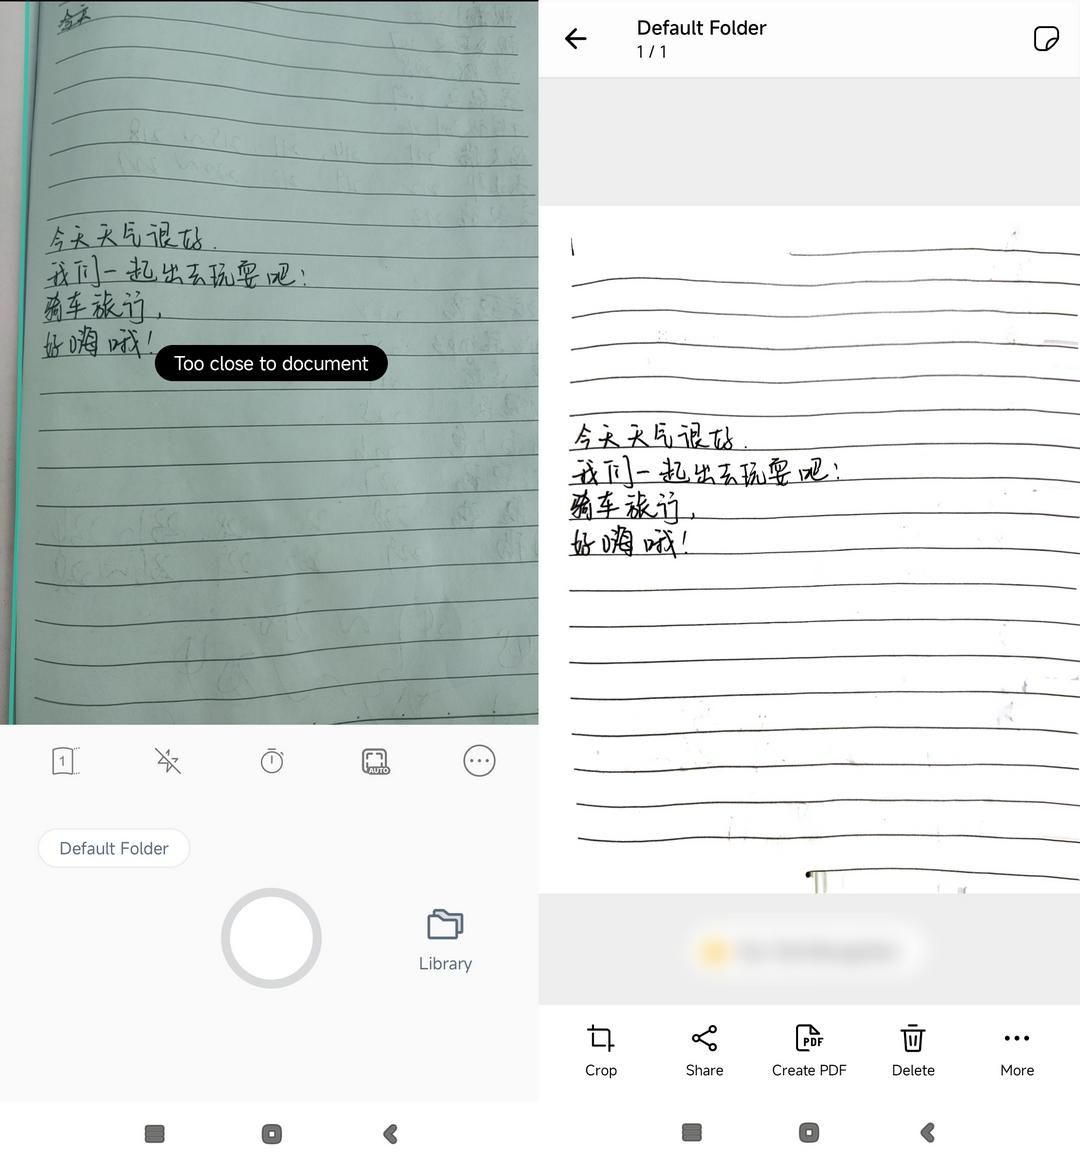 今天
今天天气很好.
我们一起出去玩耍吧:
骑车旅行,
好嗨哦!
Too close to document
1
AUTO
Default Folder
Library
Default Folder
1 / 1
今天天气很好.
我们一起出去玩耍吧:
骑车旅行,
好嗨哦!
PDF
Crop
Share
Create PDF
Delete
More